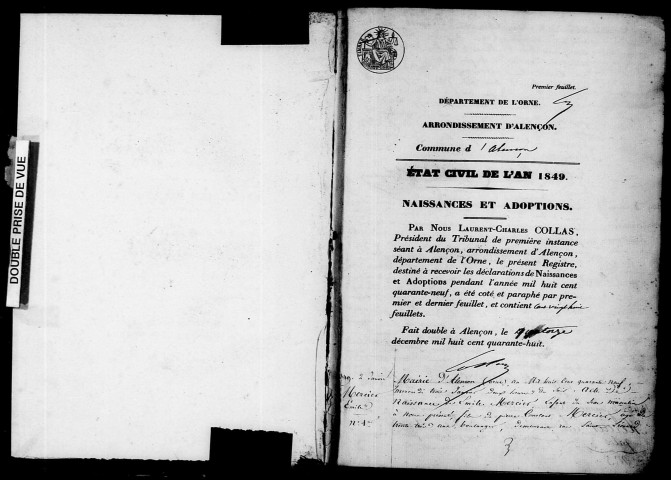 DOUBLE PRISE DE VUE
Premier feuillet.
DÉPARTEMENT DE L'ORNE.
ARRONDISSEMENT D'ALENÇON.
Commune d'Alençon
ÉTAT CIVIL DE L'AN 1849.
NAISSANCES ET ADOPTIONS.
PAR NOUS LAURENT-CHARLES COLLAS,
Président du Tribunal de première instance
séant à Alençon, arrondissement d'Alençon,
département de l'Orne, le présent Registre,
destiné à recevoir les déclarations de Naissances
et Adoptions pendant l'année mil huit cent
quarante-neuf, a été coté et paraphé par pre-
mier et dernier feuillet, et contient
feuillets.
Fait double à Alençon, le quatorze
décembre mil huit cent quarante-huit.
Mairie d'Alençon (Orne) an Mil huit cent quarante neuf
Mercier
Naissance de Emile Mercier, sexe masculin
Emile
à nous présenté, fils de pierre Mercier, agé de
N° 1er
trente boulanger, demeurant rue